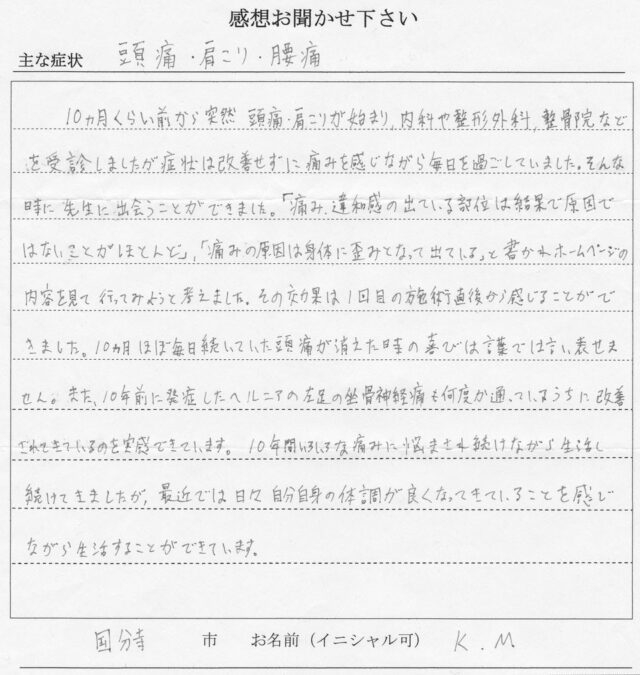 感想お聞かせ下さい
主な症状 頭痛・肩こり・腰痛
10ヵ月くらい前から突然 頭痛・肩こりが始まり, 内科や整形外科, 整骨院など
を受診しましたが症状は改善せずに痛みを感じながら毎日を過ごしていました。そんな
時に先生に出会うことができました。「痛み、違和感の出ている部位は結果で原因で
はないことがほとんど」,「痛みの原因は身体に歪みとなって出ている」と書かれホームページの
内容を見て行ってみようと考えました。その効果は1回目の施術直後から感じることがで
きました。10ヵ月ほぼ毎日続いていた頭痛が消えた時の喜びは言葉では言い表せま
せん。また、10年前に発症したヘルニアの左足の坐骨神経痛も何度か通っているうちに改善
されてきているのを実感できています。10年間いろいろな痛みに悩まされ続けながら生活し
続けてきましたが, 最近では日々自分自身の体調が良くなってきていることを感じ
ながら生活することができています。
国分寺 市 お名前（イニシャル可） K.M